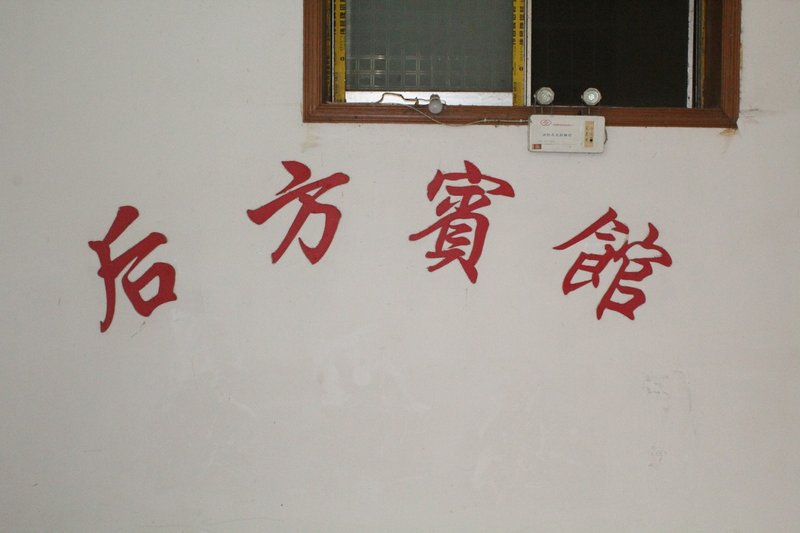 后方賓館